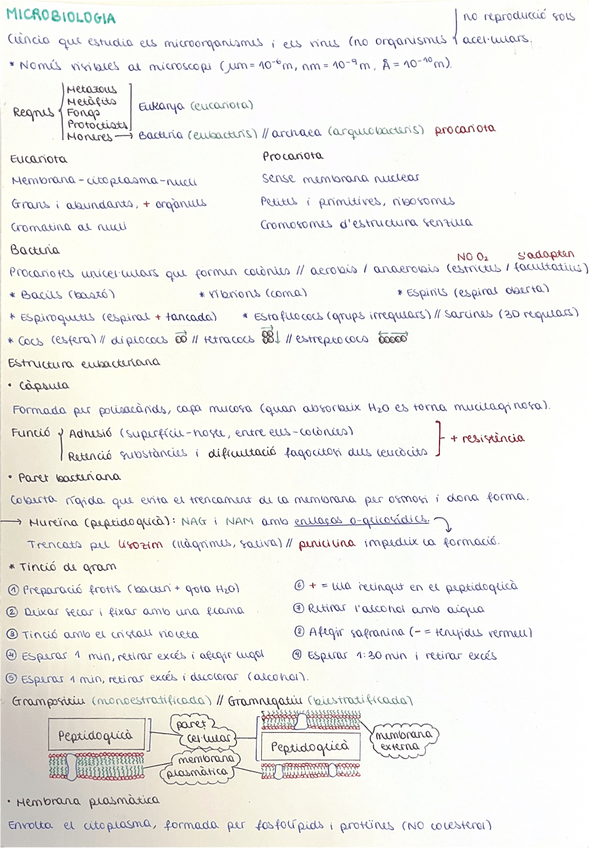 MICROBIOLOGIA
no reproducció sols
Ciència que estudia els microorganismes i els virus (no organismes acel·lulars.
* Només visibles al microscopi (μm = 10⁻⁶m, nm = 10⁻⁹m, Å = 10⁻¹⁰m).
Regnes
Metazous
Metàfits
Fongs
Protoctists
Eukarya (eucariota)
Moneres → Bacteria (eubacteris) // archaea (arqueobacteris) procariota
Eucariota Procariota
Membrana-citoplasma-nucli Sense membrana nuclear
Grans i abundants, + orgànuls Petits i primitives, ribosomes
Cromatina al nucli Cromosomes d'estructura senzilla
Bacteria
NO O₂ s'adapten
Procariotes unicel·lulars que formen colònies // aerobis / anaerobis (estrictes / facultatius)
* Bacils (bastó) * Vibrions (coma) * Espirils (espiral oberta)
* Espiroquetes (espiral + tancada) * Estafilococs (grups irregulars) // Sarcines (3D regulars)
* Cocs (esfera) // diplococs // tetracocs // estreptococs
Estructura eubacteriana
• Càpsula
Formada per polisacàrids, capa mucosa (quan absorbeix H₂O es torna mucilaginosa).
Funció Adhesió (superfície-hoste, entre ells-colònies)
Retenció substàncies i dificultació fagocitosi dels leucòcits + resistència
• Paret bacteriana
Coberta rígida que evita el trencament de la membrana per osmosi i dona forma.
→ Mureïna (peptidoglicà): NAG i NAM amb enllaços o-glicosídics.
Trencats pel lisozim (llàgrimes, saliva) // penicilina impedeix la formació.
* Tinció de gram
① Preparació frotis (bacteri + gota H₂O) ⑥ + = lila retingut en el peptidoglicà
② Deixar secar i fixar amb una flama ⑦ Retirar l'alcohol amb aigua
③ Tinció amb el cristall violeta ⑧ Afegir safranina (- = tenyides vermell)
④ Esperar 1 min, retirar excés i afegir lugol ⑨ Esperar 1:30min i retirar excés
⑤ Esperar 1 min, retirar excés i decolorar (alcohol).
Grampositiu (monoestratificada) // Gramnegatiu (biestratificada)
Peptidoglicà
paret cel·lular
membrana plasmàtica
Peptidoglicà
membrana externa
• Membrana plasmàtica
Envolta el citoplasma, formada per fosfolípids i proteïnes (NO colesterol)